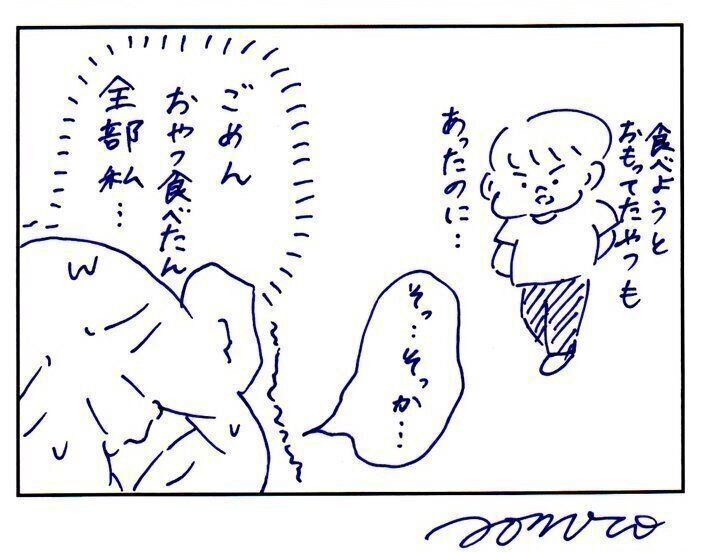 食べようと
おもってたやつも
あったのに…
そっ…そっか…
ごめん
おやつ食べたん
全部私…